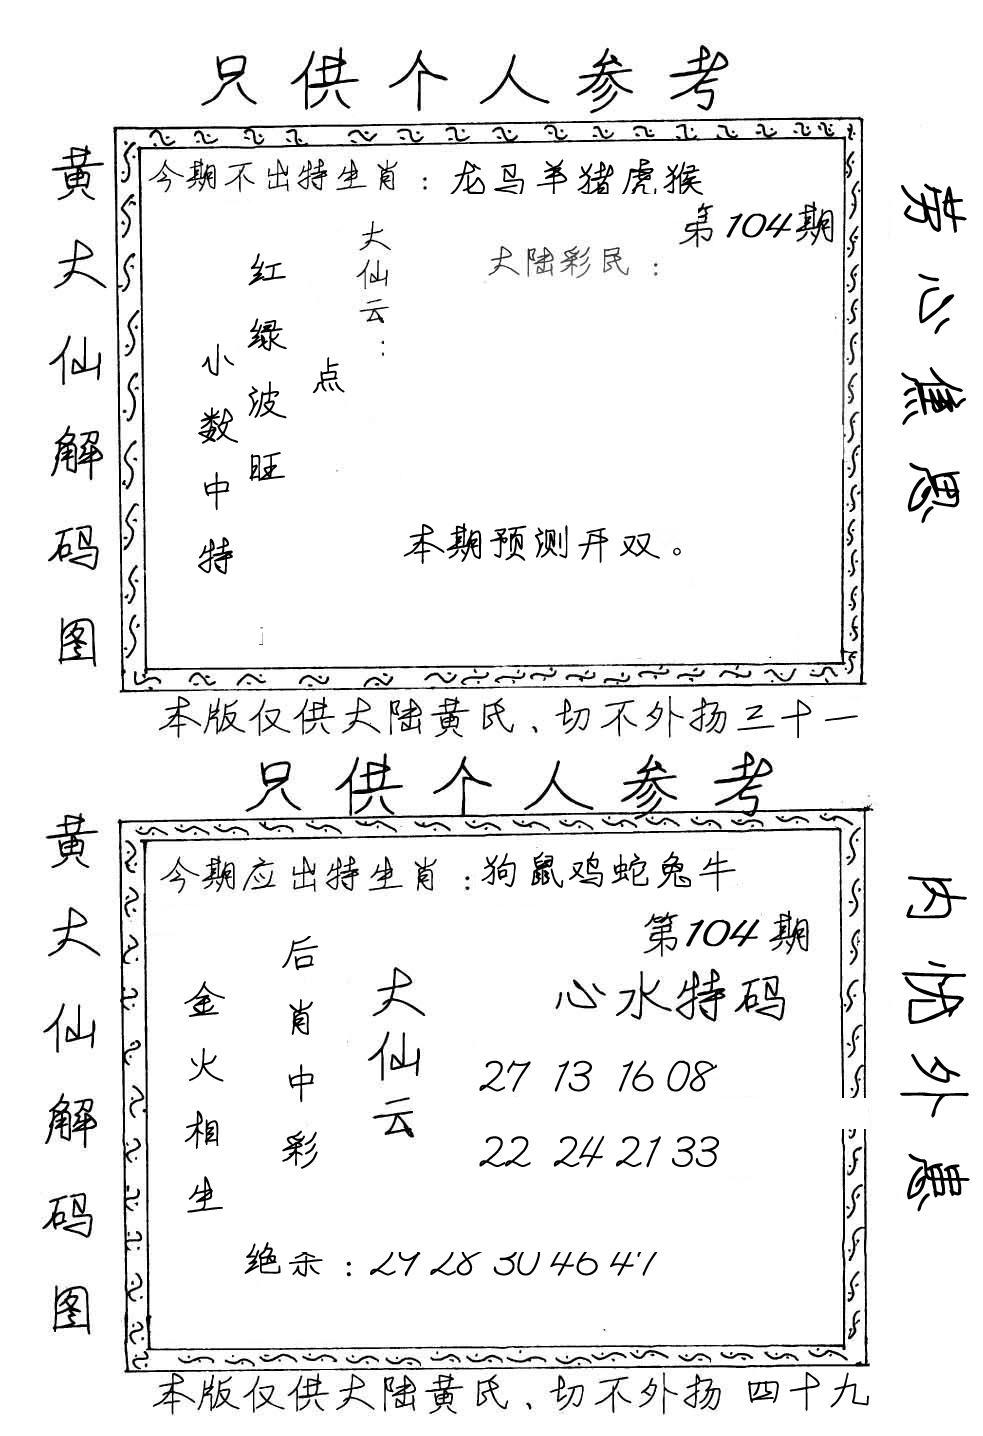 只供个人参考
黄大仙解码图
今期不出特生肖：龙马羊猪虎猴
第104期
大陆彩民：
大仙云：
点
红绿波旺
小数中特
本期预测开双。
劳心焦思
本版仅供大陆黄氏、切不外扬三十一
只供个人参考
黄大仙解码图
今期应出特生肖：狗鼠鸡蛇兔牛
第104期
心水特码
27 13 16 08
22 24 21 33
大仙云
后肖中彩
金火相生
绝杀：29 28 30 46 47
内忧外患
本版仅供大陆黄氏、切不外扬 四十九